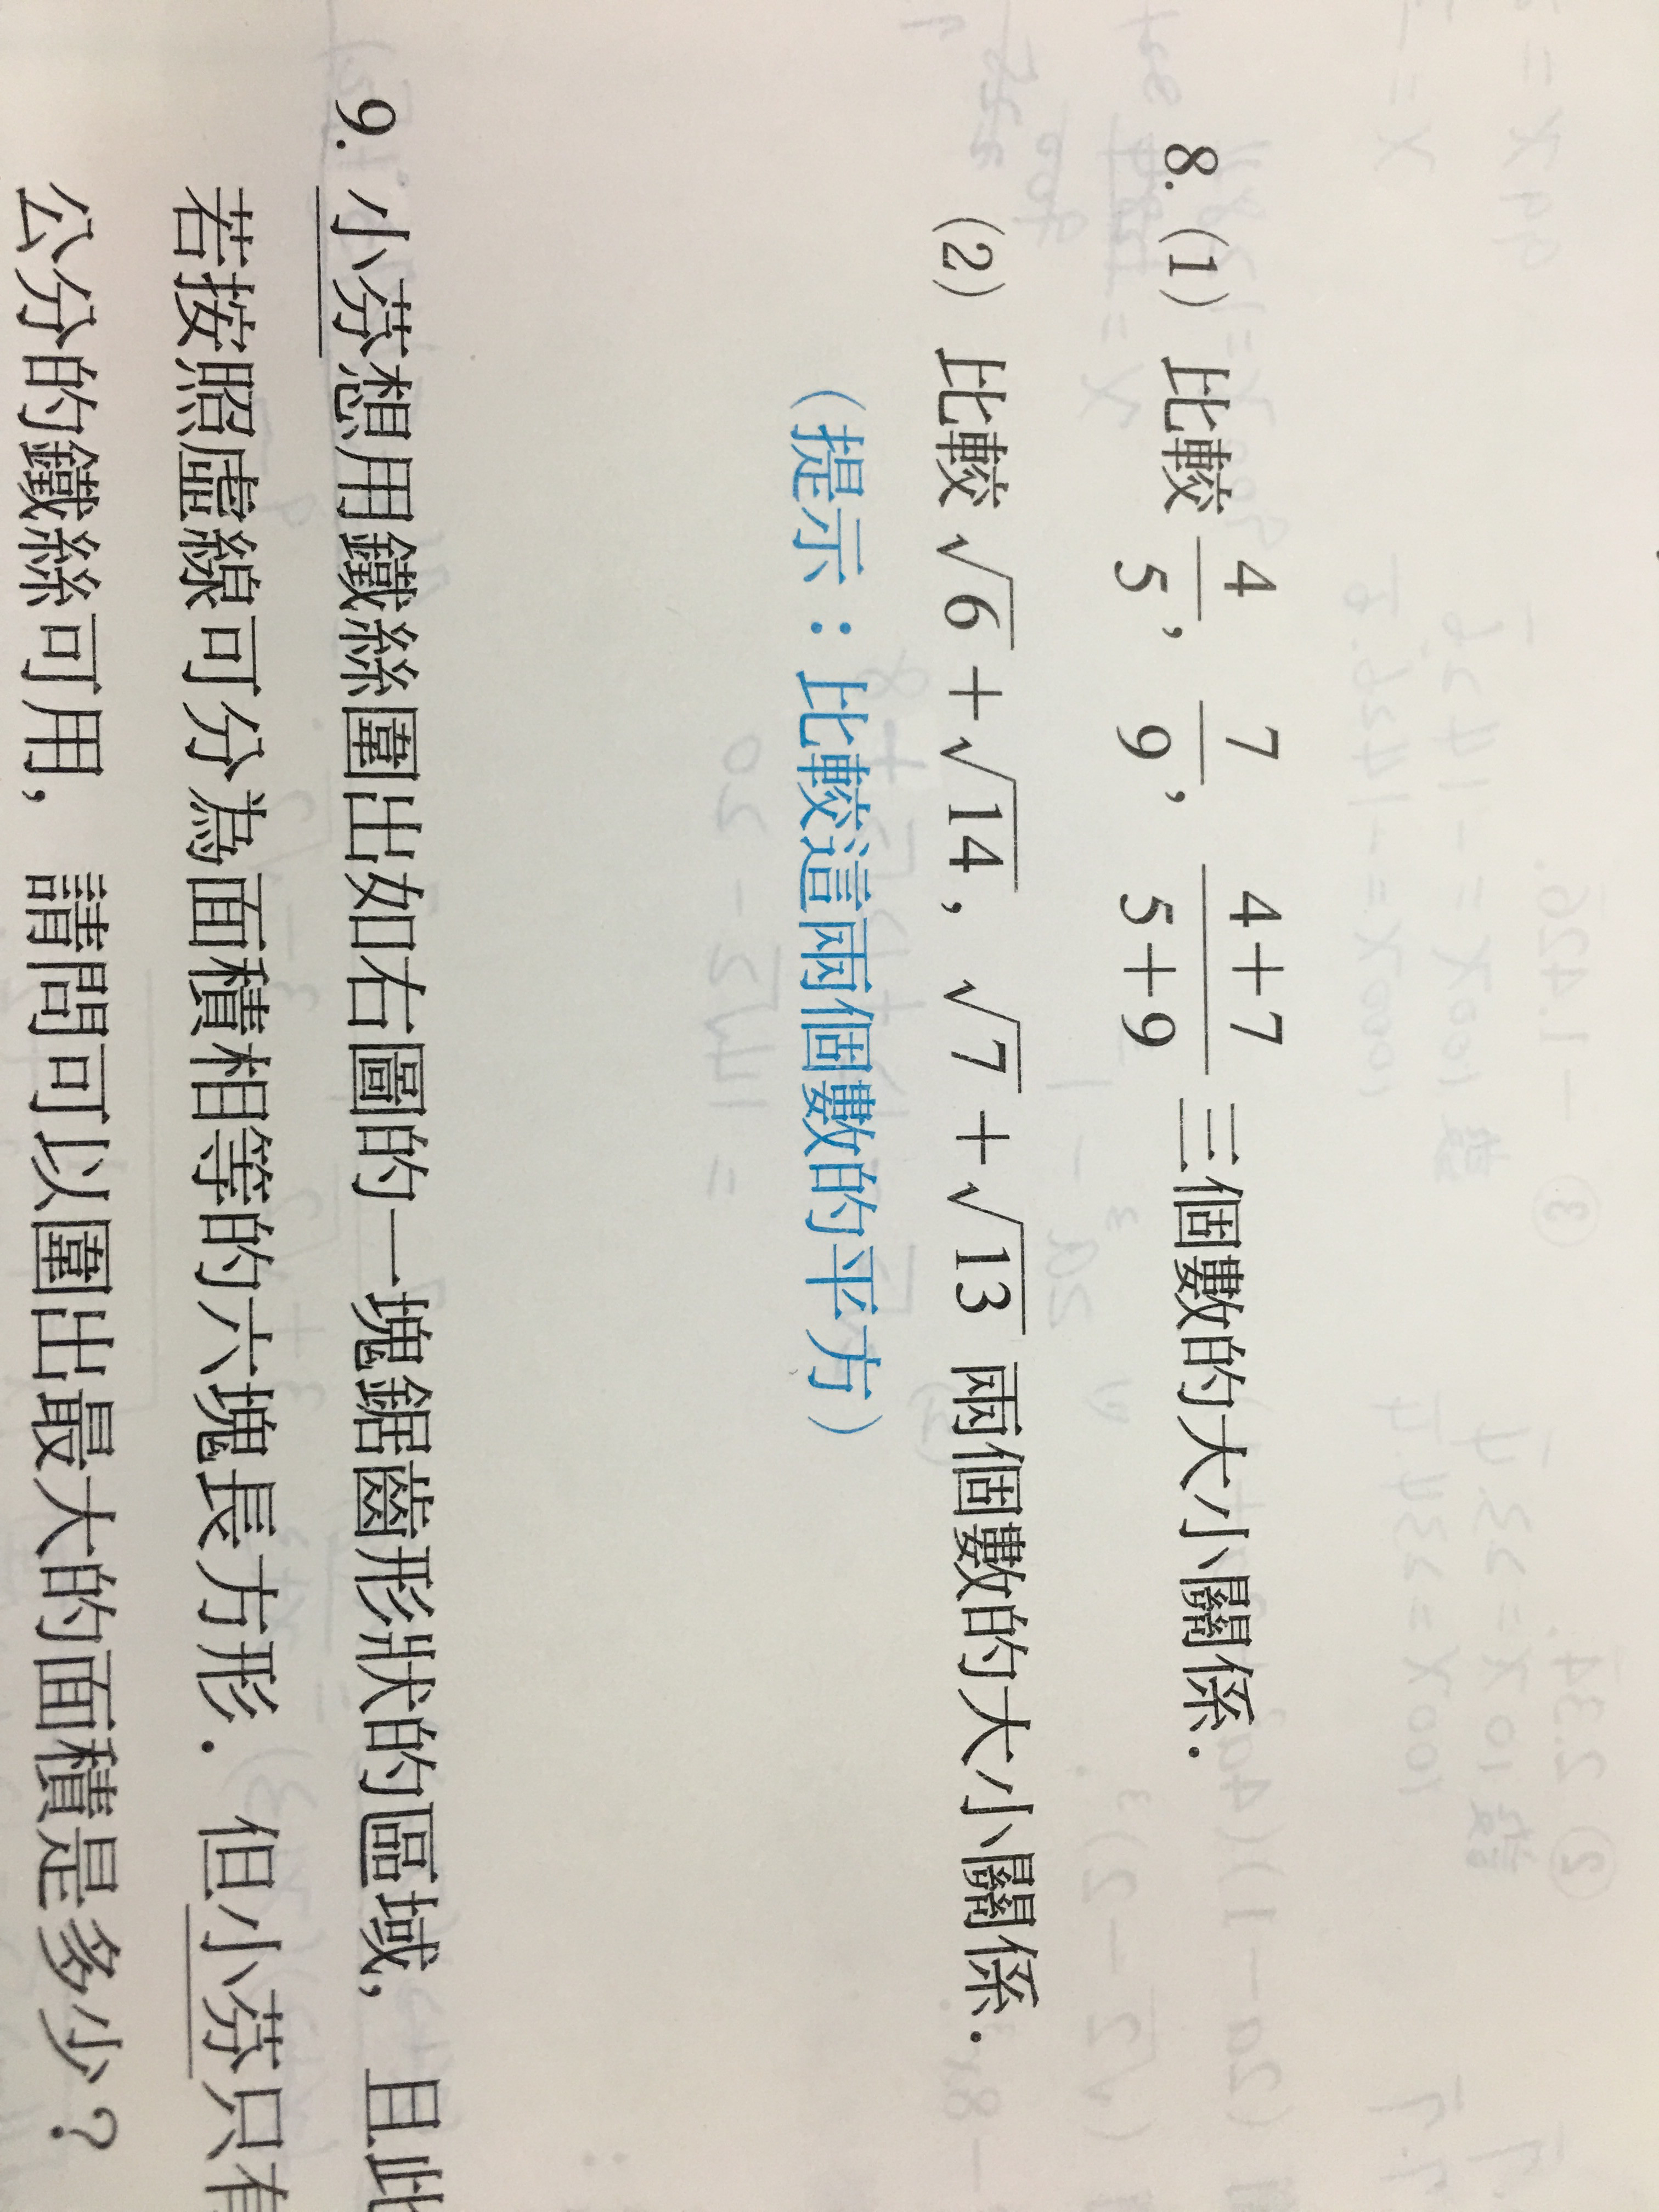 8. (1) 比較 4/5, 7/9, (4+7)/(5+9) 三個數的大小關係.
(2) 比較 √6+√14, √7+√13 兩個數的大小關係.
(提示：比較這兩個數的平方)
9. 小芬想用鐵絲圍出如右圖的一塊鋸齒形狀的區域, 且此
若按照虛線可分為面積相等的六塊長方形. 但小芬只有
公分的鐵絲可用, 請問可以圍出最大的面積是多少?